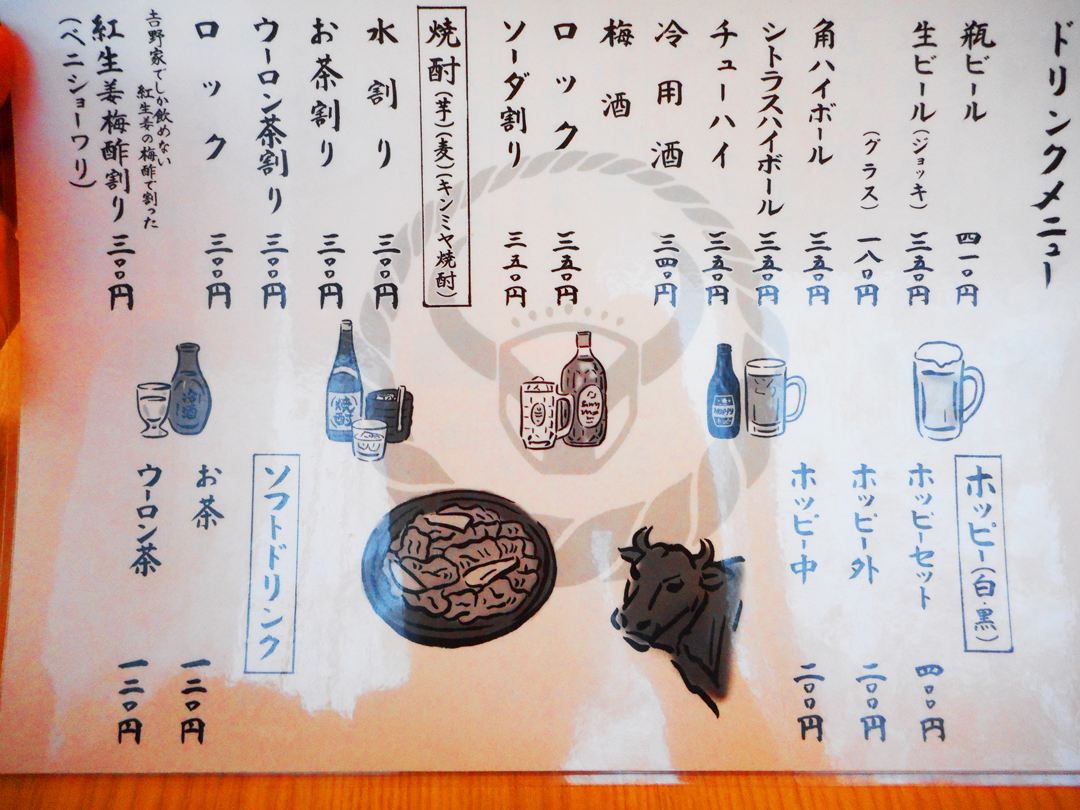 ドリンクメニュー
瓶ビール 四一〇円
生ビール(ジョッキ) 三五〇円
(グラス) 一八〇円
角ハイボール 三五〇円
シトラスハイボール 三五〇円
チューハイ 三五〇円
冷用酒 三四〇円
梅酒
ロック 三五〇円
ソーダ割り 三五〇円
焼酎(芋)(麦)(キンミヤ焼酎)
水割り 三〇〇円
お茶割り 三〇〇円
ウーロン茶割り 三〇〇円
ロック 三〇〇円
吉野家でしか飲めない
紅生姜の梅酢で割った
紅生姜梅酢割り 三〇〇円
(ベニショーワリ)
HOPPY
焼酎
冷酒
ホッピー(白・黒)
ホッピーセット 四〇〇円
ホッピー外 二〇〇円
ホッピー中 二〇〇円
ソフトドリンク
お茶 一二〇円
ウーロン茶 一二〇円